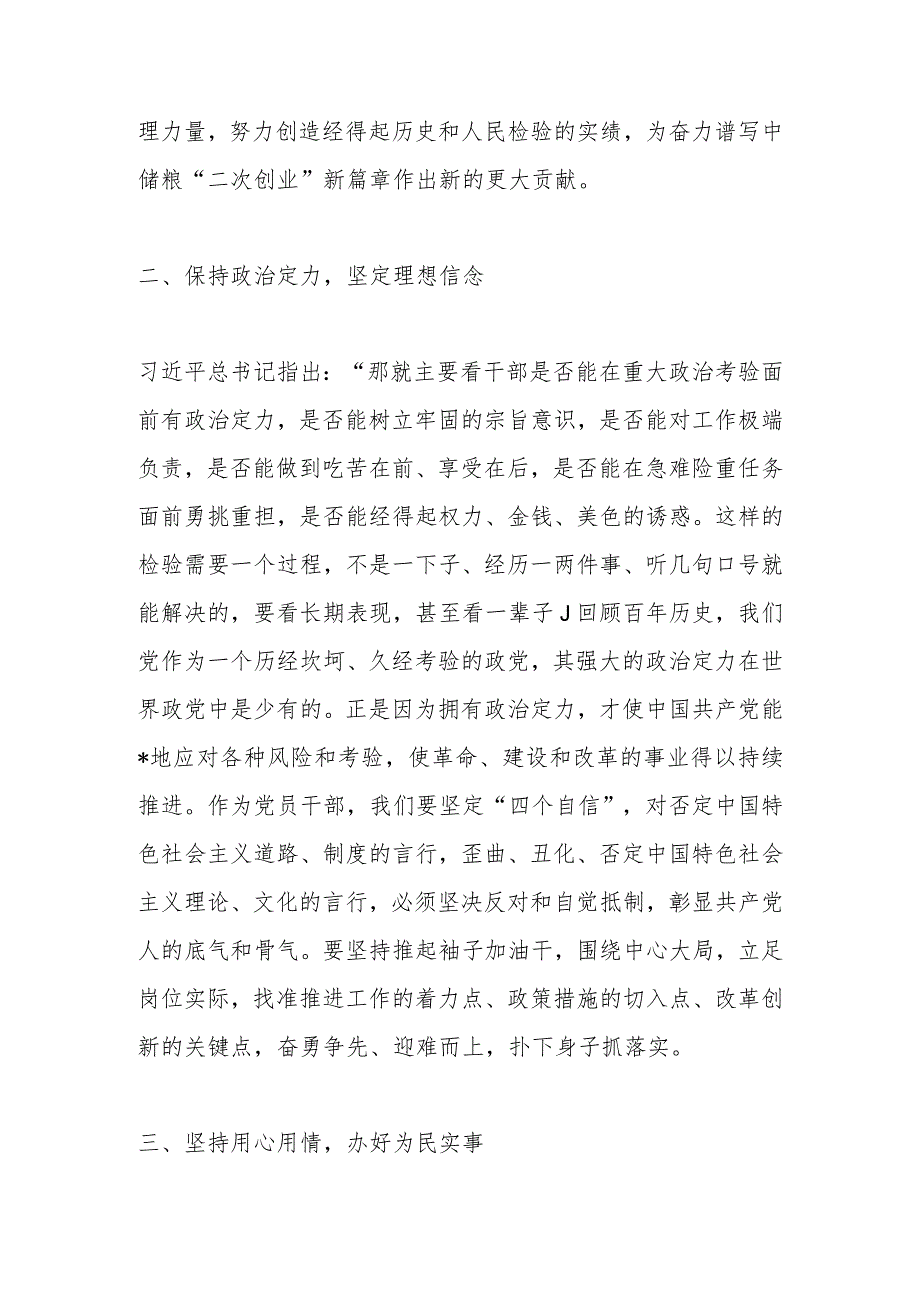 理力量，努力创造经得起历史和人民检验的实绩，为奋力谱写中
储粮“二次创业”新篇章作出新的更大贡献。
二、保持政治定力，坚定理想信念
习近平总书记指出：“那就主要看干部是否能在重大政治考验面
前有政治定力，是否能树立牢固的宗旨意识，是否能对工作极端
负责，是否能做到吃苦在前、享受在后，是否能在急难险重任务
面前勇挑重担，是否能经得起权力、金钱、美色的诱惑。这样的
检验需要一个过程，不是一下子、经历一两件事、听几句口号就
能解决的，要看长期表现，甚至看一辈子J回顾百年历史，我们
党作为一个历经坎坷、久经考验的政党，其强大的政治定力在世
界政党中是少有的。正是因为拥有政治定力，才使中国共产党能
*地应对各种风险和考验，使革命、建设和改革的事业得以持续
推进。作为党员干部，我们要坚定“四个自信”，对否定中国特
色社会主义道路、制度的言行，歪曲、丑化、否定中国特色社会
主义理论、文化的言行，必须坚决反对和自觉抵制，彰显共产党
人的底气和骨气。要坚持推起袖子加油干，围绕中心大局，立足
岗位实际，找准推进工作的着力点、政策措施的切入点、改革创
新的关键点，奋勇争先、迎难而上，扑下身子抓落实。
三、坚持用心用情，办好为民实事